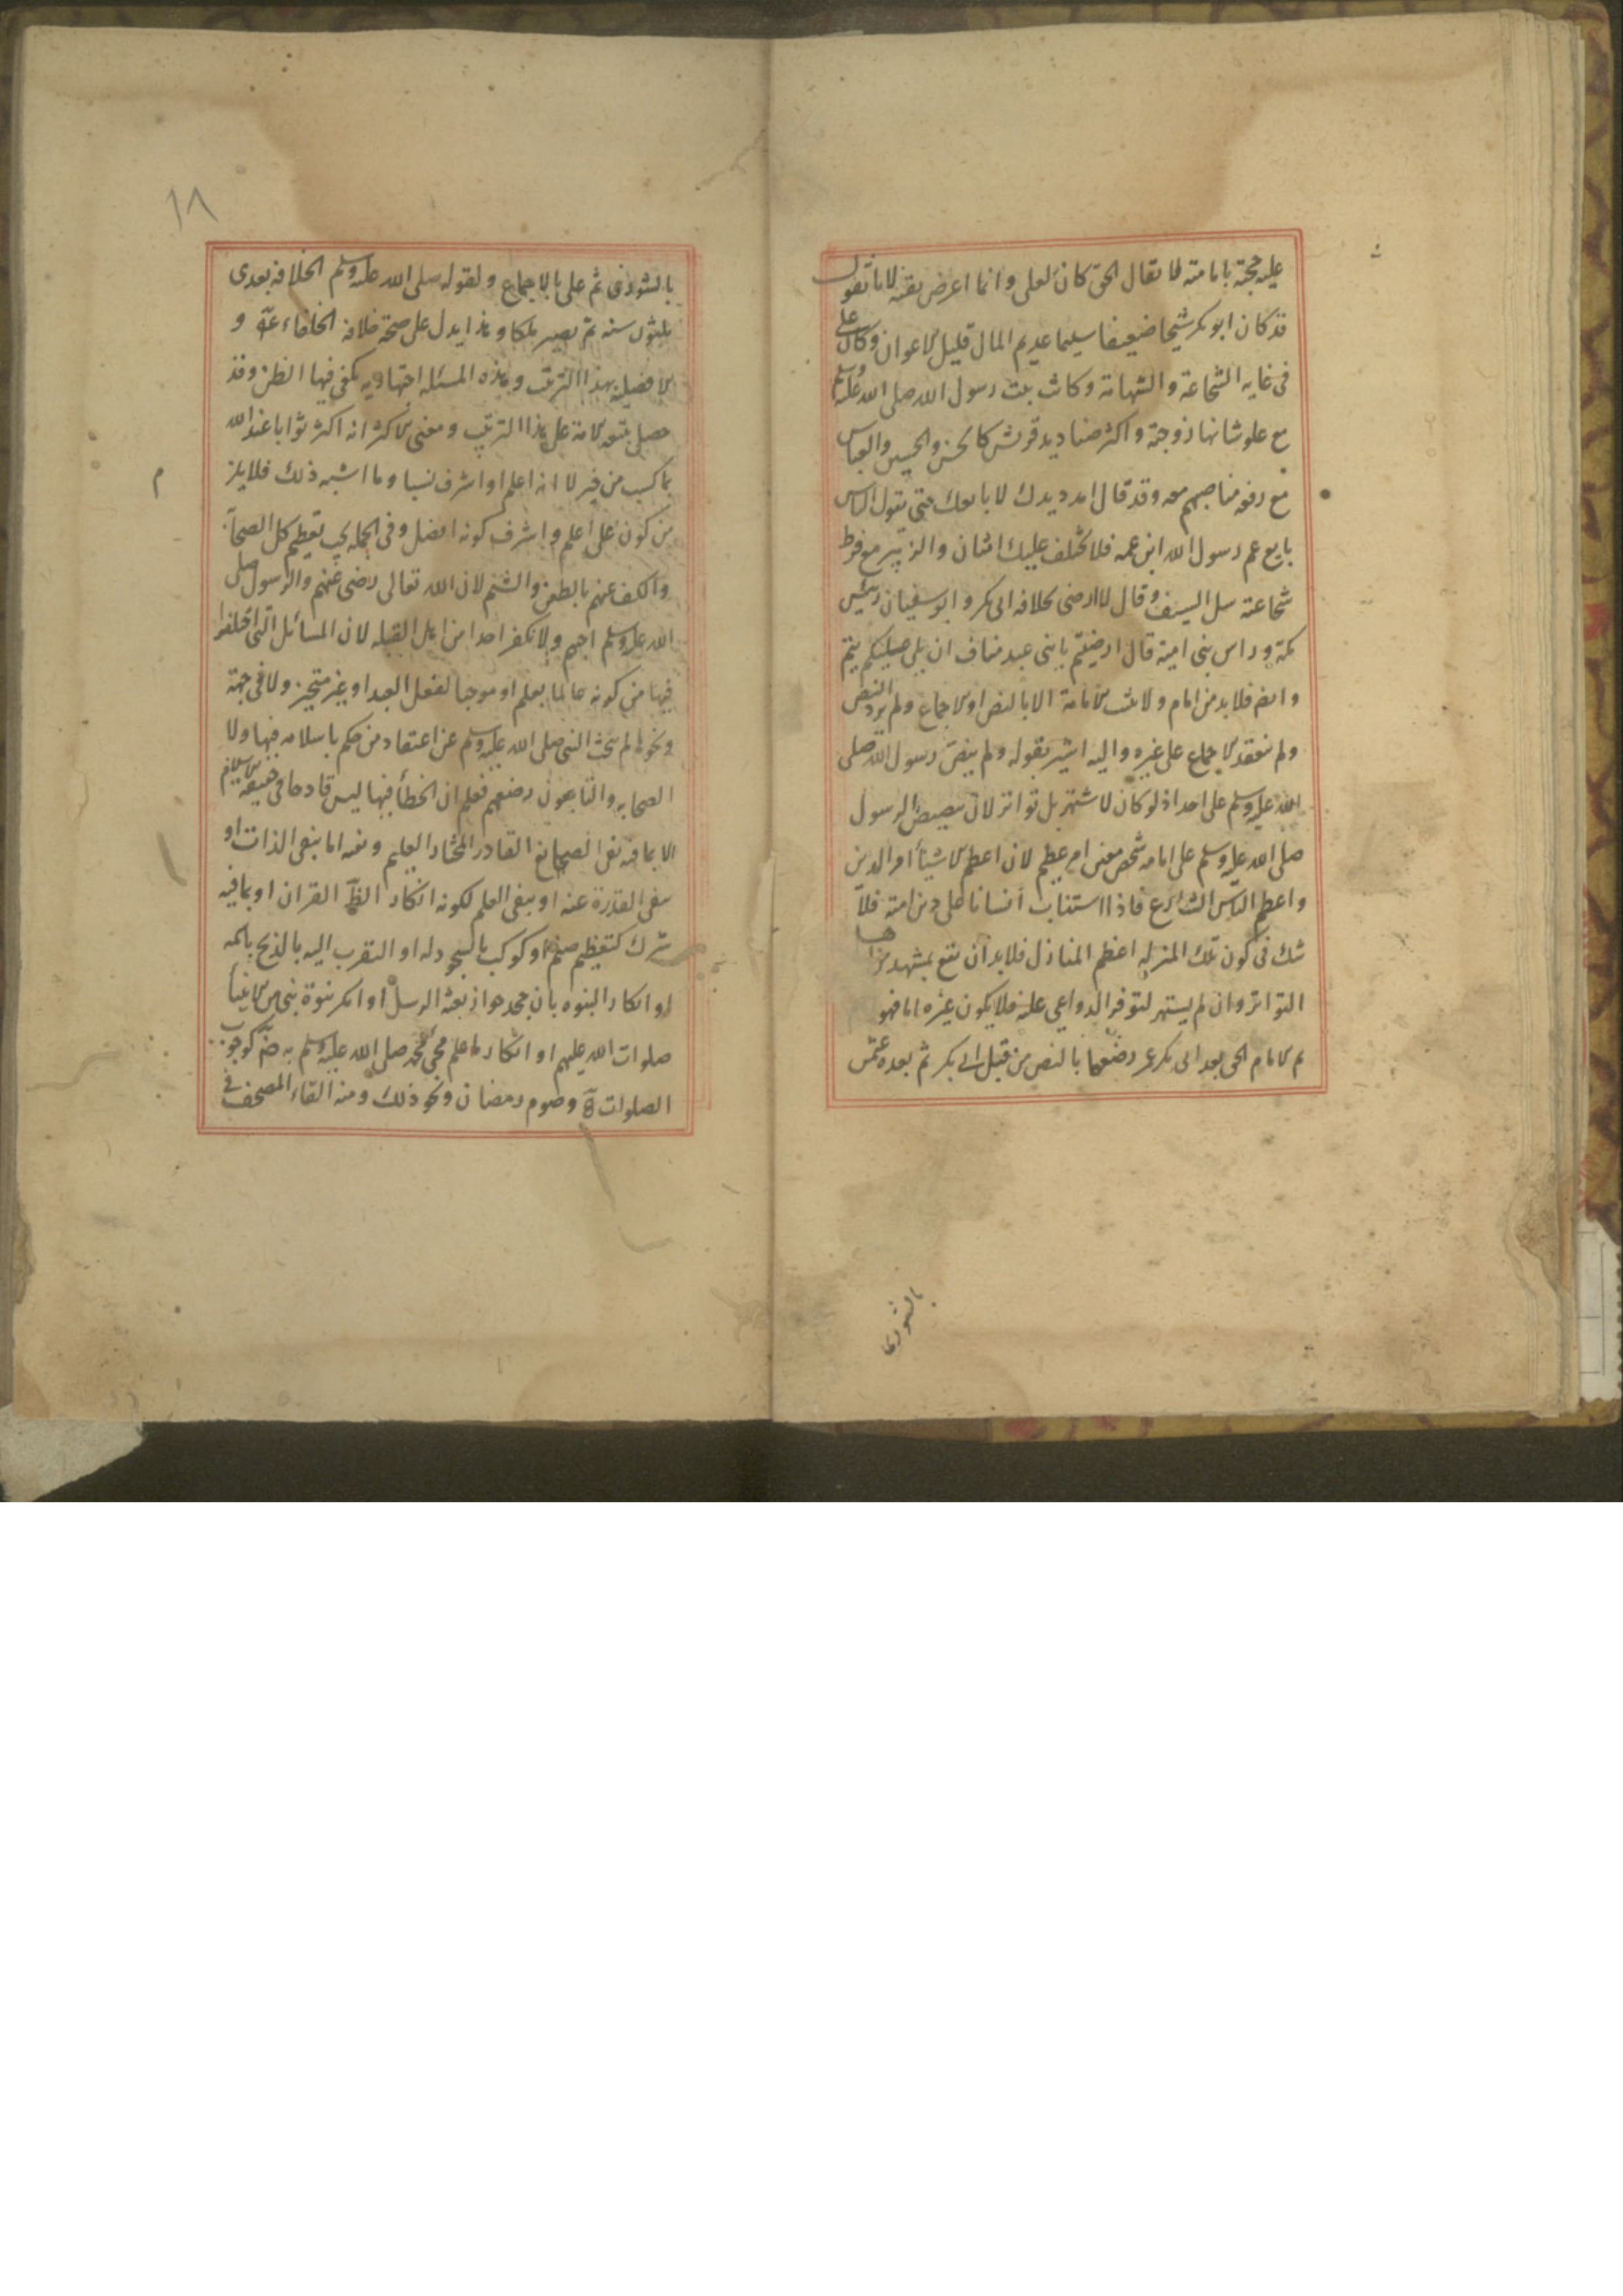 عليه حجة بامامته لا يقال الحق كان لعلي وانما اعرض تقية لانا نقول
قد كان ابو بكر شيخا ضعيفا سليما عديم المال قليل الاعوان وكان علي
في غاية الشجاعة والشهامة وكانت بنت رسول الله صلى الله عليه وسلم
مع علو شانها زوجته واكثر صناديد قريش كالحسن والحسين والعباس
مع رفعة مناصبهم معه وقد قال امدد يدك لابايعك حتى يقول الناس
بايع عم رسول الله ابن عمه فلا يختلف عليك اثنان والزبير مع فرط
شجاعته سل السيف وقال لا ارضى بخلافة ابي بكر وابو سفيان رئيس
مكة وراس بني امية قال ارضيتم يا بني عبد مناف ان يلي عليكم تيم
وايضا فلا بد من امام ولا تثبت الامامة الا بالنص او الاجماع ولم يرد النص
ولم ينعقد الاجماع على غيره واليه اشير بقوله ولم ينص رسول الله صلى
الله عليه وسلم على احد اذ لو كان لاشتهر بل تواتر لان تنصيص الرسول
صلى الله عليه وسلم على امامة شخص معين امر عظيم لان اعظم الاشياء امر الدين
واعظم الناس الشارع فاذا استناب انسانا على دين امته فلا
شك في كون تلك المنزلة اعظم المنازل فلا بد ان يقع بمشهد من اصحاب
التواتر وان لم يشتهر لتوفر الدواعي عليه فلا يكون غيره اماما فهو
ثم الامام الحق بعد ابي بكر عمر رضي عنهما بالنص من قبل ابي بكر ثم بعده عثمن
بالشورى
١٨
بالشورى ثم علي بالاجماع ولقوله صلى الله عليه وسلم الخلافة بعدي
ثلثون سنة ثم يصير ملكا وهذا يدل على صحة خلافة الخلفاء و
الافضلية بهذا الترتيب وهذه المسئلة اجتهادية يكفي فيها الظن وقد
حصل بتبعه الامة على هذا الترتيب ومعنى الاكثر انه اكثر ثوابا عند الله
بما كسب من خير لا انه اعلم او اشرف نسبا وما اشبه ذلك فلا يلزم
من كون علي اعلم واشرف كونه افضل وفي الجملة يجب تعظيم كل الصحابة
والكف عنهم بالطعن والشتم لان الله تعالى رضي عنهم والرسول صلى
الله عليه وسلم احبهم ولا نكفر احدا من اهل القبلة لان المسائل التي اختلفوا
فيها من كونه عالما بعلم او موجدا لفعل العبد او غير متحيز ولا في جهة
ونحوها لم يبحث النبي صلى الله عليه وسلم عن اعتقاد من حكم باسلامه فيها ولا
الصحابة والتابعون رضي عنهم فعلم ان الخطأ فيها ليس قادحا في حقيقة الاسلام
الا بما فيه نفي الصانع القادر المختار العليم ونفيه اما بنفي الذات او
بنفي القدرة عنه او بنفي العلم لكونه انكار القرآن او بما فيه
شرك كتعظيم صنم او كوكب بالسجود له او التقرب اليه بالذبح باسمه
او انكار النبوة بان يجحد جواز بعثة الرسل او انكر نبوة نبي من الانبياء
صلوات الله عليهم او انكار ما علم مجيء محمد صلى الله عليه وسلم به ضرورة كوجوب
الصلوات وصوم رمضان ونحو ذلك ومنه القاء المصحف في